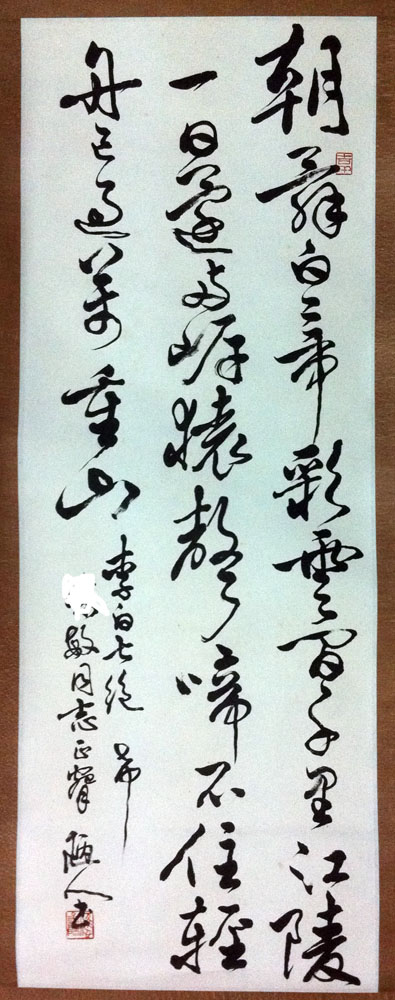 朝辭白帝彩雲間千里江陵
一日還兩岸猿聲啼不住輕
舟已過萬重山
李白七絕 希
敏同志正 陋人書